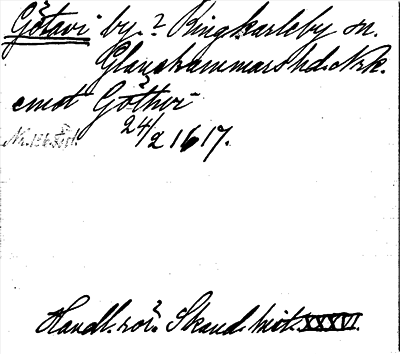 Götavi by ? Ringkarleby sn.
Glanshammars hd. Nrk.
emot Göthvi
24/2 1617.
Handl. rör. Skand. hist. XXXVI.